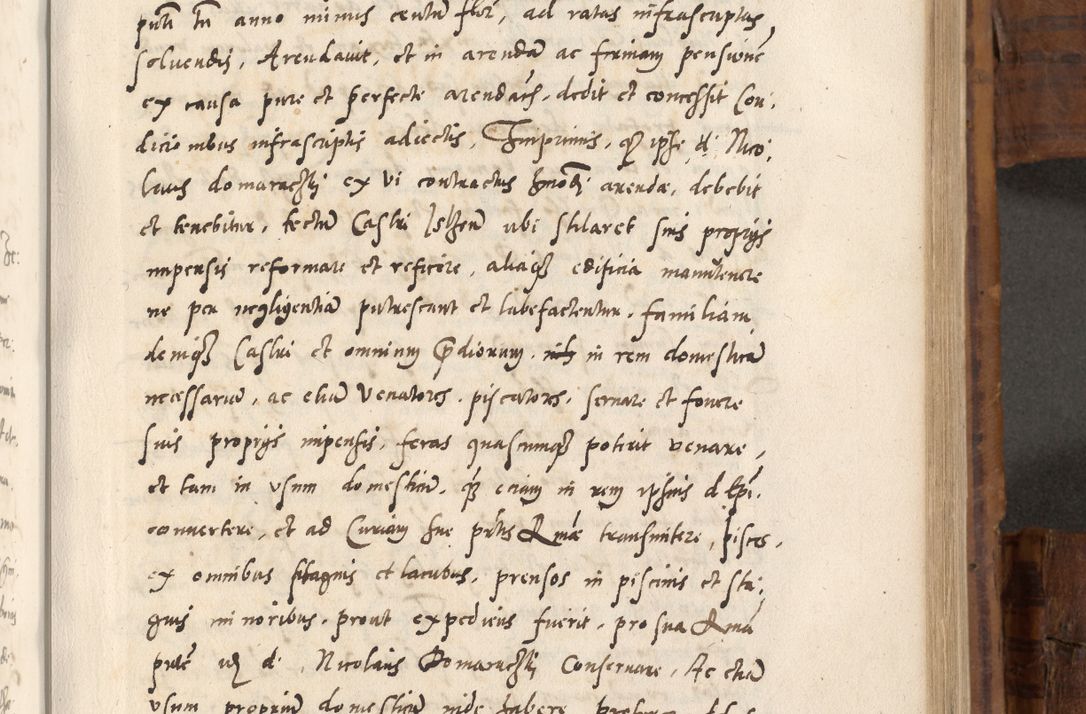 puti tñ anno minus centũ flor, ad ratas infrascriptas
solvendis, Arendavit, et in arendã ac firmam pensionẽ
ex causa pure et perfecte arendatis, dedit et concessit Con:
dicionibus infrascriptis adiectis, Imprimis, q ipse d: Nico:
laus domaraczki ex vi contractus hmodi arendæ, debebit
et tenebitur, tectũ Castri ubi stilaret suis proprijs
impensis reformare et reficere, aliaq edificia manutenere
ne per negligentiã putrescant et labefactentur, familiam
deniq Castri et omnium prediorum, in rem domesticã
necessariã, ac etiã Venatores, piscatores, servare et fovere
suis proprijs impensis, feras quascumq poterit venare,
et tam in usum domesticũ, q etiam in rem ipsius d Epi.
convertere, et ad Curiam sue prtis Rmæ transmittere, pisces,
ex omnibus stagnis et lacubus, prensos in piscinis et sta:
gnis minoribus, prout expediens fuerit, pro sua Rma
prte d: Nicolaus Domaraczki Conservare, Ac etiã
usum propriũ domesticũ inde habere